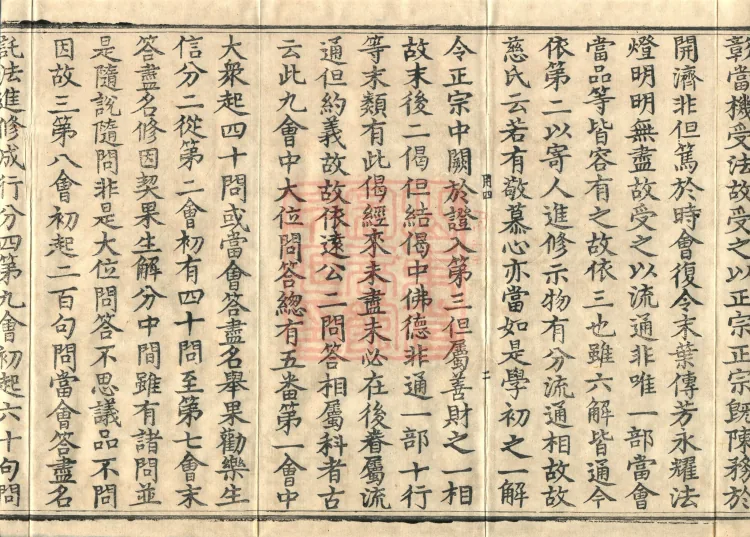 彰當機受法故受之以正宗旣陳務於
開濟非但篤於時會復令末葉傳芳永耀法
燈明明無盡故受之以流通非唯一部當會
當品等皆容有之故依三也雖六解皆通今
依第二以寄人進修示物有分流通相故故
慈氏云若有敬慕心亦當如是學初之一解
四 二
令正宗中闕於證入第三但屬善財之一相
故末後二偈但結偈中佛德非通一部十行
等末類有此偈經來未盡未必在後眷屬流
通但約義故故依遠公二問答相屬科者古
云此九會中大位問答總有五番第一會中
大衆起四十問或當會答盡名舉果勸樂生
信分二從第二會初有四十問至第七會末
答盡名修因契果生解分中間雖有諸問並
是隨說隨問非是大位問答不思議品不問
因故三第八會初起二百句問當會答盡名
託法進修成行分四第九會初起六十句問